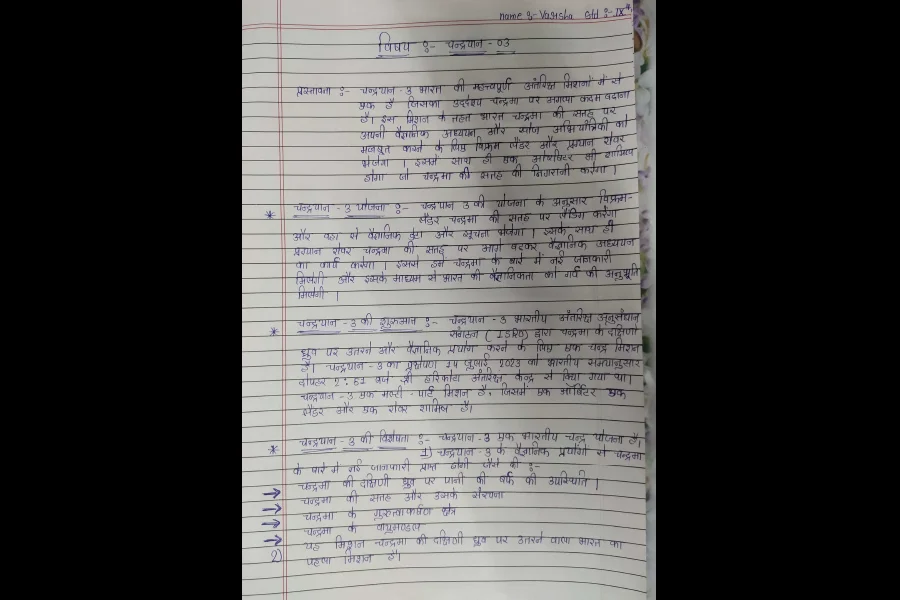 Name :- Vanisha Std :- IXth
विषय :- चन्द्रयान - 03
प्रस्तावना :- चन्द्रयान - 3 भारत की महत्वपूर्ण अंतरिक्ष मिशनों में से
एक है जिसका उद्देश्य चन्द्रमा पर अगला कदम बढ़ाना
है। इस मिशन के तहत भारत चन्द्रमा की सतह पर
अपनी वैज्ञानिक अध्ययन और खोज अभियांत्रिकी को
मजबूत करने के लिए विक्रम लैंडर और प्रज्ञान रोवर
भेजेगा । इसके साथ ही एक ऑर्बिटर भी शामिल
होगा जो चन्द्रमा की सतह की निगरानी करेगा ।
* चन्द्रयान - 3 योजना :- चन्द्रयान 3 की योजना के अनुसार विक्रम-
लैंडर चन्द्रमा की सतह पर लैंडिंग करेगा
और वहा से वैज्ञानिक डेटा और सूचना भेजेगा । इसके साथ ही
प्रज्ञान रोवर चन्द्रमा की सतह पर आगे बढ़कर वैज्ञानिक अध्ययन
का कार्य करेगा । इससे हमें चन्द्रमा के बारे में नई जानकारी
मिलेगी और इसके माध्यम से भारत की वैज्ञानिकता को गर्व की अनुभूति
मिलेगी ।
* चन्द्रयान - 3 की शुरुआत :- चन्द्रयान - 3 भारतीय अंतरिक्ष अनुसंधान
संगठन ( ISRO ) द्वारा चन्द्रमा के दक्षिणी
ध्रुव पर उतरने और वैज्ञानिक प्रयोग करने के लिए एक चन्द्र मिशन
है। चन्द्रयान - 3 का प्रक्षेपण 14 जुलाई 2023 को भारतीय समयानुसार
दोपहर 2:51 बजे श्री हरिकोटा अंतरिक्ष केन्द्र से किया गया था।
चन्द्रयान - 3 एक मल्टी - पार्ट मिशन है, जिसमें एक ऑर्बिटर एक
लैंडर और एक रोवर शामिल है।
* चन्द्रयान - 3 की विशेषता :- चन्द्रयान - 3 एक भारतीय चन्द्र योजना है।
1) चन्द्रयान - 3 के वैज्ञानिक प्रयोगों से चन्द्रमा
के बारे में नई जानकारी प्राप्त होगी जैसे की :-
→ चन्द्रमा की दक्षिणी ध्रुव पर पानी की बर्फ की उपस्थिति ।
→ चन्द्रमा की सतह और उसके संरचना
→ चन्द्रमा के गुरुत्वाकर्षण क्षेत्र
→ चन्द्रमा के वायुमण्डल
2) यह मिशन चन्द्रमा की दक्षिणी ध्रुव पर उतरने वाला भारत का
पहला मिशन है।